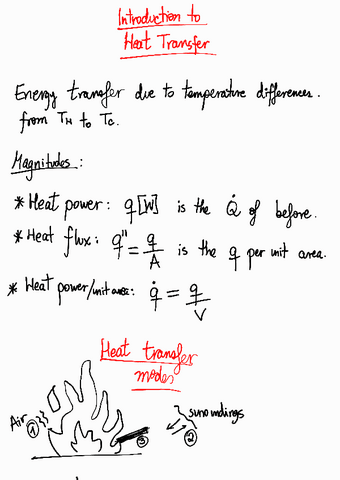 Introduction to
Heat Transfer
Energy transfer due to temperature differences.
from TH to TC.
Magnitudes:
* Heat power: q [W] is the Q̇ of before.
* Heat flux: q" = q/A is the q per unit area.
* Heat power/unit area: q̇ = q/V
Heat transfer
modes
Air
①
③
surroundings
②